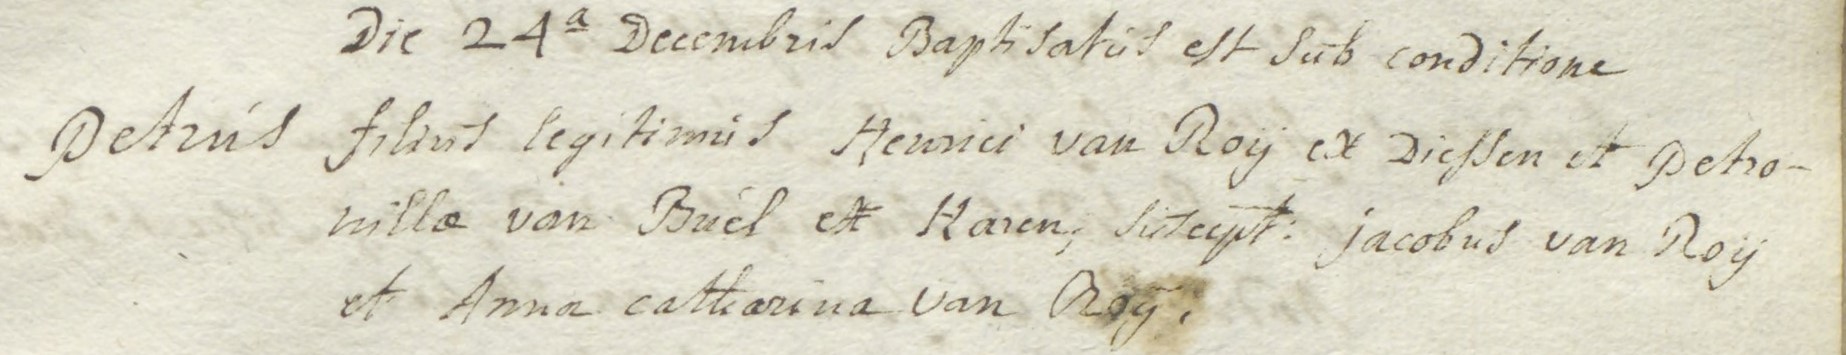 Die 24ª Decembris Baptisatus est sub conditione
Petrus filius legitimus Henrici van Roij ex Diessen et Petro-
nillæ van Buel ex Haren, suscept: jacobus van Roij
et Anna catharina van Roij.